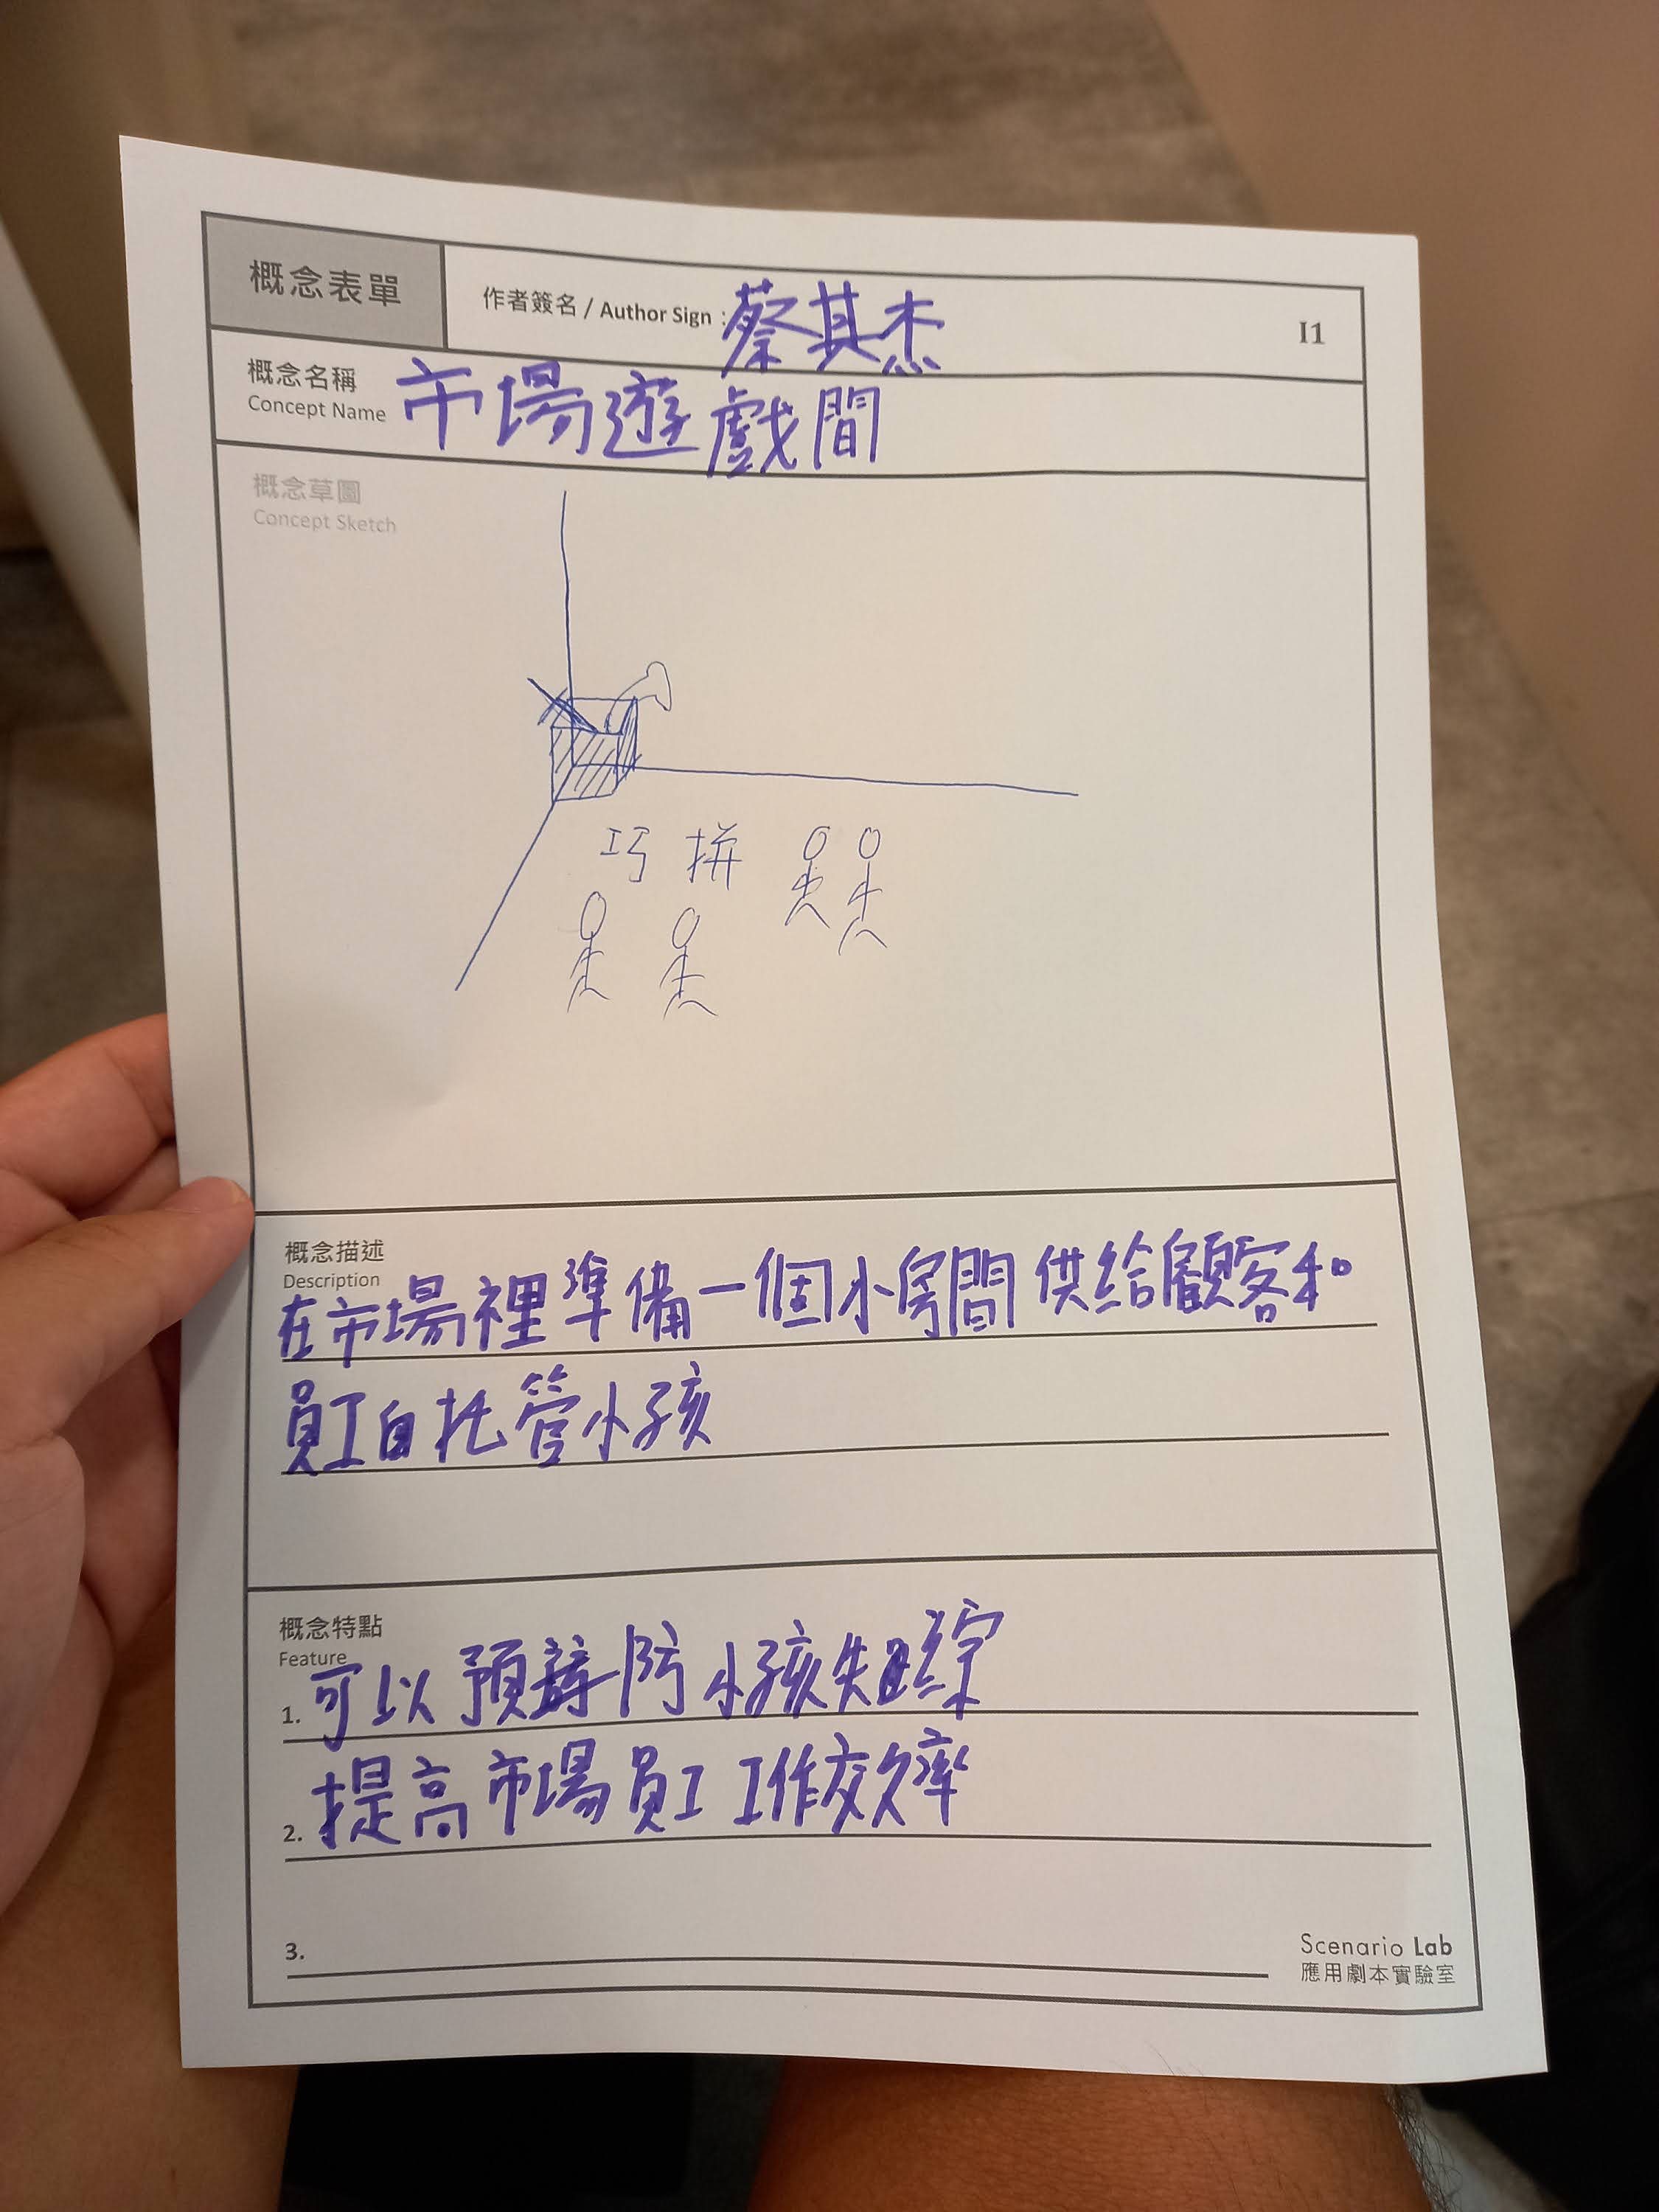 概念表單
作者簽名 / Author Sign : 蔡其杰
I1
概念名稱
Concept Name
市場遊戲間
概念草圖
Concept Sketch
巧拼
概念描述
Description
在市場裡準備一個小房間供給顧客和
員工自托管小孩
概念特點
Feature
1. 可以預防小孩失蹤
2. 提高市場員工工作效率
3.
Scenario Lab
應用劇本實驗室